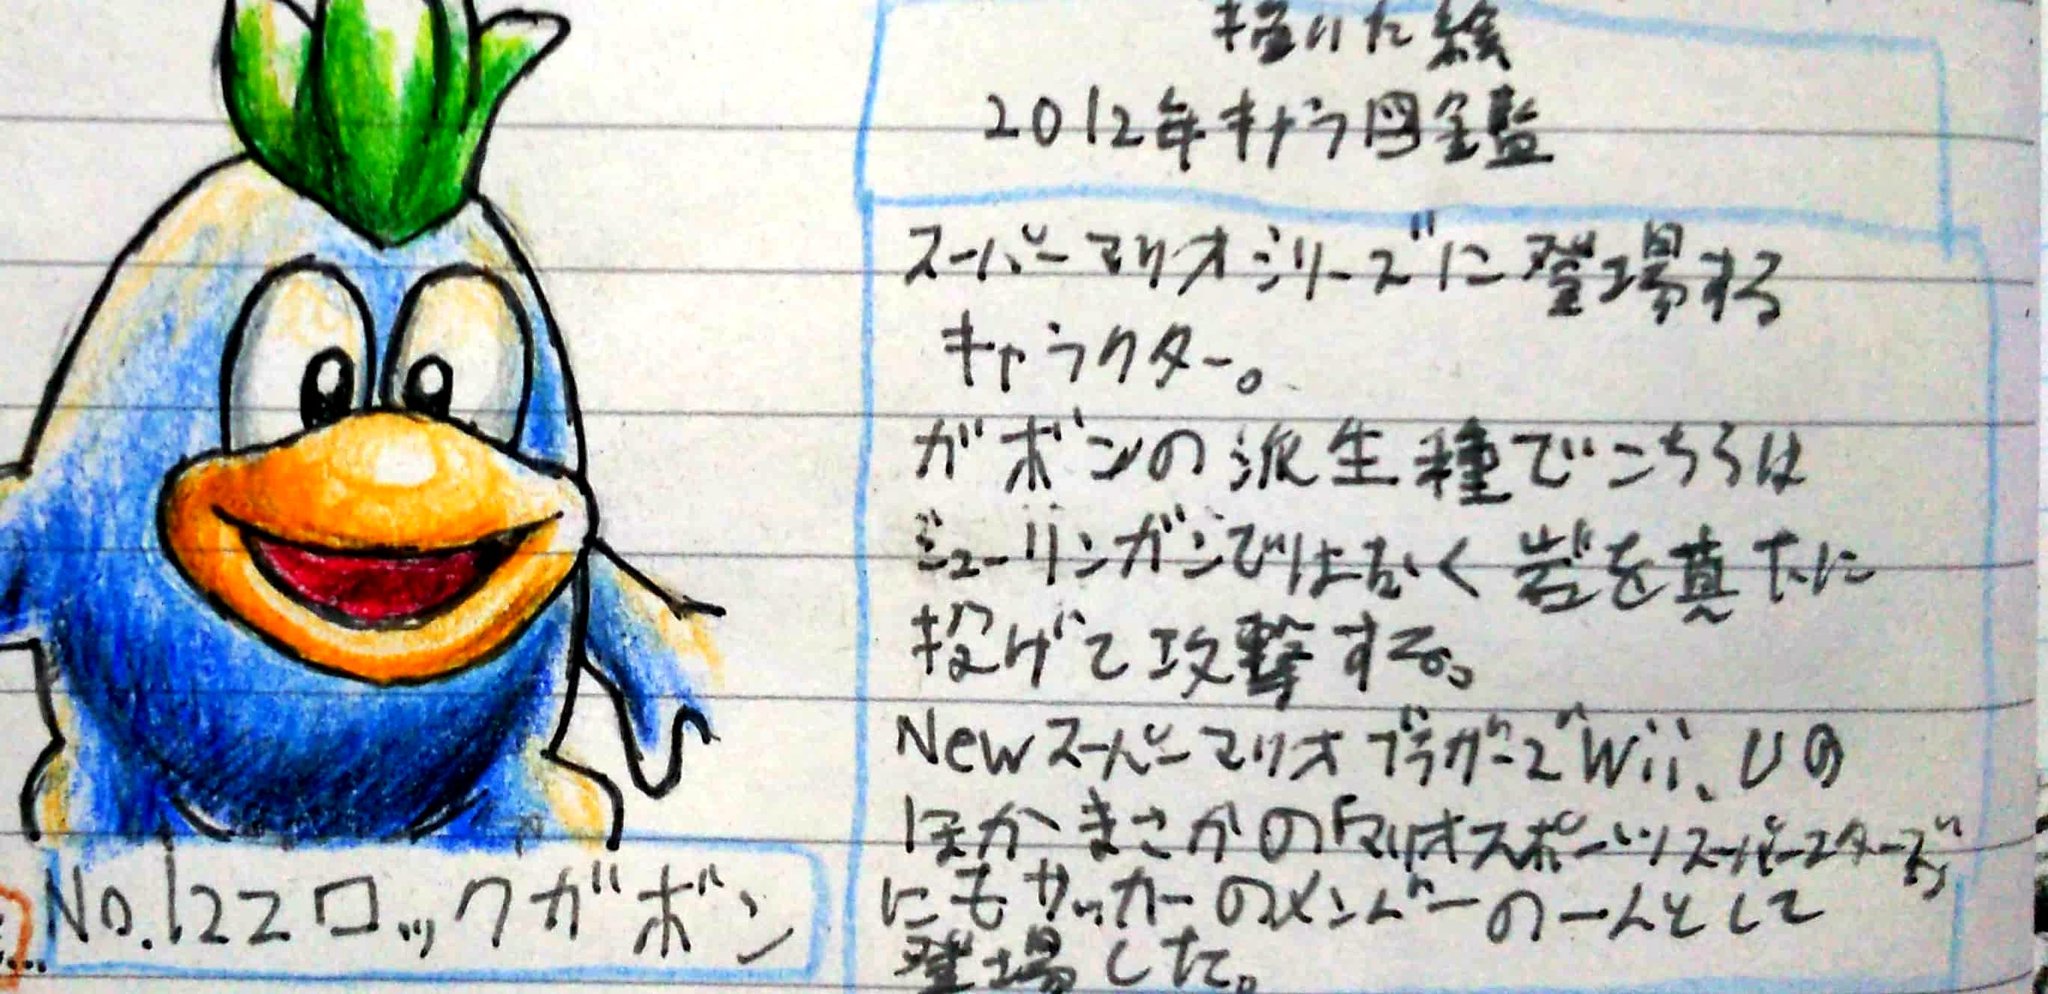 描いた絵
2012年キャラ図鑑
スーパーマリオシリーズに登場する
キャラクター。
ガボンの派生種でこちらは
シューリンガンではなく岩を真下に
投げて攻撃する。
NewスーパーマリオブラザーズWii、Uの
ほかまさかの「マリオスポーツスーパースターズ」
にもサッカーのメンバーの一人として
登場した。
No.122ロックガボン